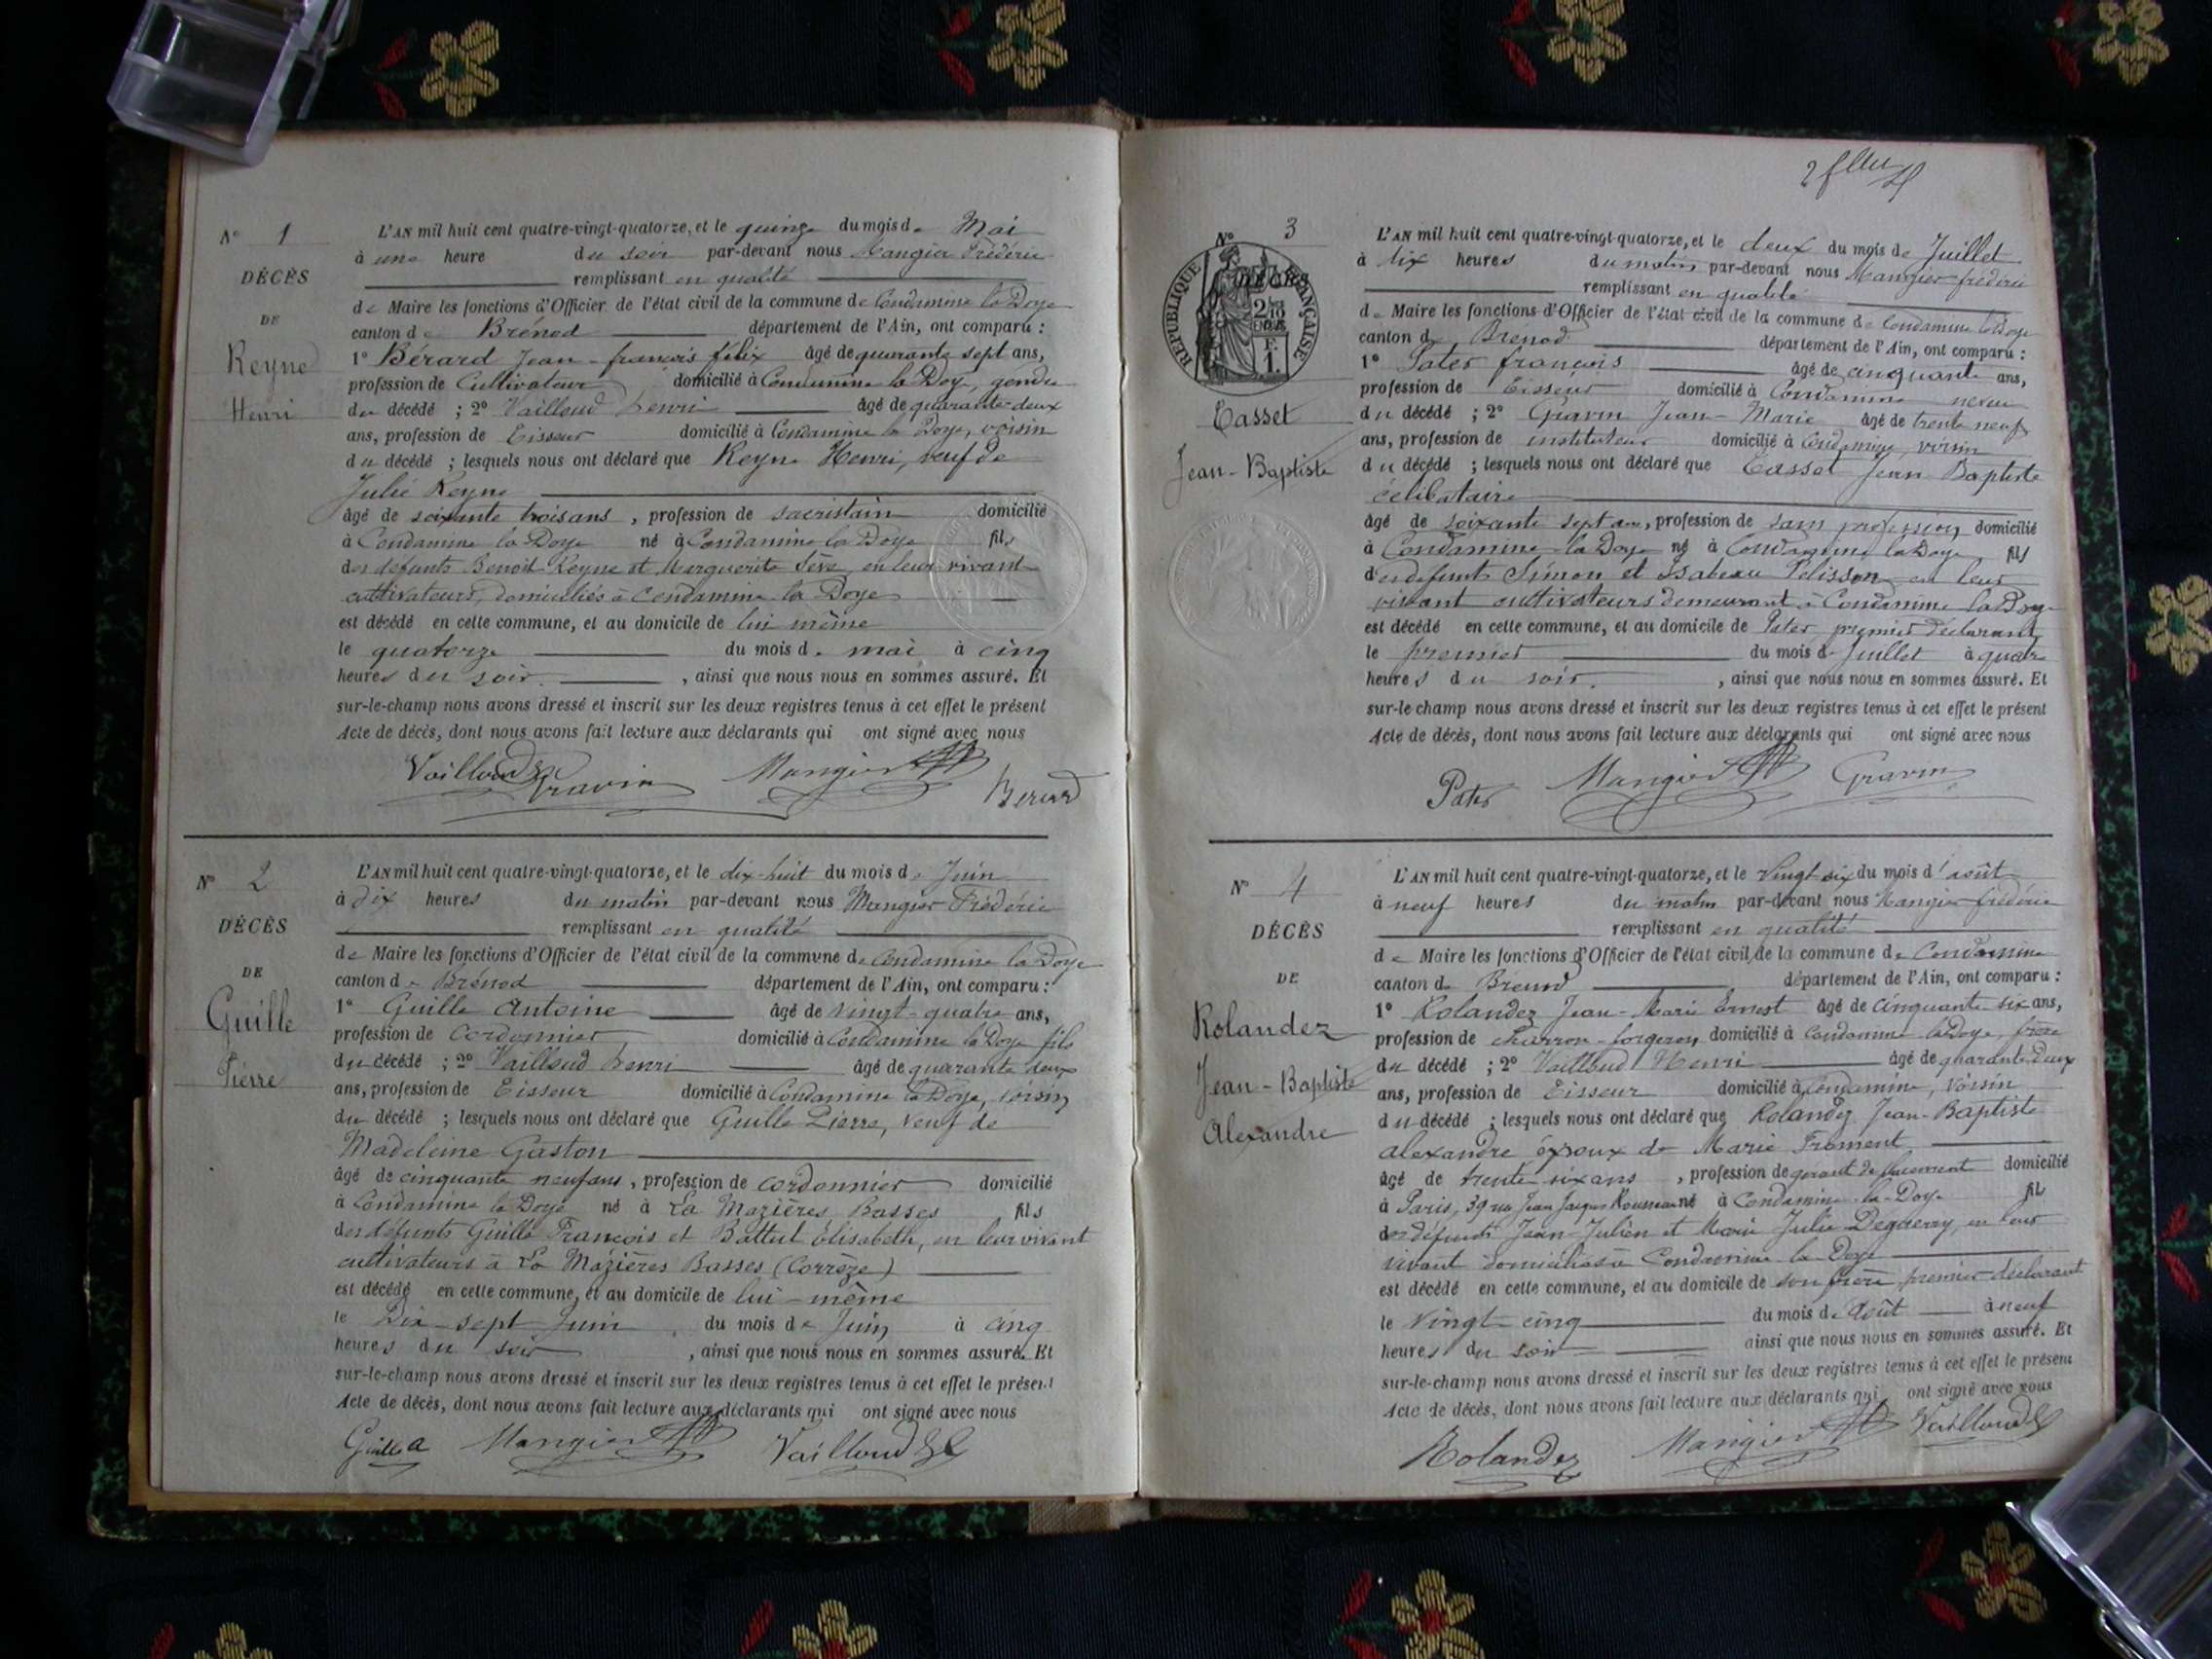 N° 1
DÉCÈS
DE
Reyne
Henri
L'AN mil huit cent quatre-vingt-quatorze, et le quinze du mois de Mai
à une heure du soir par-devant nous Mangier Frédéric
remplissant en qualité
de Maire les fonctions d'Officier de l'état civil de la commune de Condamine la Doye
canton de Brénod département de l'Ain, ont comparu :
1° Bérard Jean-françois félix âgé de quarante sept ans,
profession de Cultivateur domicilié à Condamine la Doye, gendre
du décédé ; 2° Vailloud henri âgé de quarante-deux
ans, profession de Tisseur domicilié à Condamine la Doye, voisin
du décédé ; lesquels nous ont déclaré que Reyne Henri, veuf de
Julie Reyne
âgé de soixante trois ans, profession de sacristain domicilié
à Condamine la Doye né à Condamine la Doye fils
des défunts Benoît Reyne et Marguerite Sève, en leur vivant
cultivateurs, domiciliés à Condamine la Doye
est décédé en cette commune, et au domicile de lui même
le quatorze du mois de mai à cinq
heures du soir, ainsi que nous nous en sommes assuré. Et
sur-le-champ nous avons dressé et inscrit sur les deux registres tenus à cet effet le présent
Acte de décès, dont nous avons fait lecture aux déclarants qui ont signé avec nous
Vailloud Gravin Mangier Berard
N° 2
DÉCÈS
DE
Guille
Pierre
L'AN mil huit cent quatre-vingt-quatorze, et le dix-huit du mois de Juin
à dix heures du matin par-devant nous Mangier Frédéric
remplissant en qualité
de Maire les fonctions d'Officier de l'état civil de la commune de Condamine la Doye
canton de Brénod département de l'Ain, ont comparu :
1° Guille Antoine âgé de vingt-quatre ans,
profession de cordonnier domicilié à Condamine la Doye fils
du décédé ; 2° Vailloud henri âgé de quarante deux
ans, profession de Tisseur domicilié à Condamine la Doye, voisin
du décédé ; lesquels nous ont déclaré que Guille Pierre, veuf de
Madeleine Gaston
âgé de cinquante neuf ans, profession de cordonnier domicilié
à Condamine la Doye né à La Mazières Basses fils
des défunts Guille François et Battut élisabeth, en leur vivant
cultivateurs à La Mazières Basses (Corrèze)
est décédé en cette commune, et au domicile de lui-même
le Dix-sept Juin du mois de Juin à cinq
heures du soir, ainsi que nous nous en sommes assuré. Et
sur-le-champ nous avons dressé et inscrit sur les deux registres tenus à cet effet le présent
Acte de décès, dont nous avons fait lecture aux déclarants qui ont signé avec nous
Guille a Mangier Vailloud
N° 3
DÉCÈS
RÉPUBLIQUE FRANÇAISE
Tasset
Jean-Baptiste
L'AN mil huit cent quatre-vingt-quatorze, et le deux du mois de Juillet
à dix heures du matin par-devant nous Mangier frédéric
remplissant en qualité
de Maire les fonctions d'Officier de l'état civil de la commune de Condamine la Doye
canton de Brénod département de l'Ain, ont comparu :
1° Pater françois âgé de cinquante ans,
profession de Tisseur domicilié à Condamine neveu
du décédé ; 2° Gravin Jean-Marie âgé de trente neuf
ans, profession de instituteur domicilié à Condamine, voisin
du décédé ; lesquels nous ont déclaré que Tasset Jean Baptiste
célibataire
âgé de soixante sept ans, profession de sans profession, domicilié
à Condamine la Doye né à Condamine la Doye fils
des défunts Simon et Isabeau Pelisson en leur
vivant cultivateurs demeurant à Condamine la Doye
est décédé en cette commune, et au domicile de Pater premier déclarant
le premier du mois de Juillet à quatre
heures du soir, ainsi que nous nous en sommes assuré. Et
sur-le champ nous avons dressé et inscrit sur les deux registres tenus à cet effet le présent
Acte de décès, dont nous avons fait lecture aux déclarants qui ont signé avec nous
Pater Mangier Gravin
N° 4
DÉCÈS
DE
Rolandez
Jean-Baptiste
Alexandre
L'AN mil huit cent quatre-vingt-quatorze, et le Vingt-six du mois d'août
à neuf heures du matin par-devant nous Mangier frédéric
remplissant en qualité
de Maire les fonctions d'Officier de l'état civil de la commune de Condamine
canton de Brénod département de l'Ain, ont comparu :
1° Rolandez Jean-Marie Ernest âgé de cinquante six ans,
profession de charron-forgeron domicilié à Condamine la Doye, frère
du décédé ; 2° Vailloud Henri âgé de quarante Deux
ans, profession de Tisseur domicilié à Condamine, voisin
du décédé ; lesquels nous ont déclaré que Rolandez Jean-Baptiste
alexandre époux de Marie Froment
âgé de trente six ans, profession de gérant de domicilié
à Paris, 39 rue Jean Jacques Rousseau né à Condamine-la-Doye fils
des défunts Jean-Julien et Marie Julie Deguerry, en leur
vivant domiciliés à Condamine la Doye
est décédé en cette commune, et au domicile de son frère premier déclarant
le vingt-cinq du mois de Août à neuf
heures du soir ainsi que nous nous en sommes assuré. Et
sur-le-champ nous avons dressé et inscrit sur les deux registres tenus à cet effet le présent
Acte de décès, dont nous avons fait lecture aux déclarants qui ont signé avec nous
Rolandez Mangier Vailloud